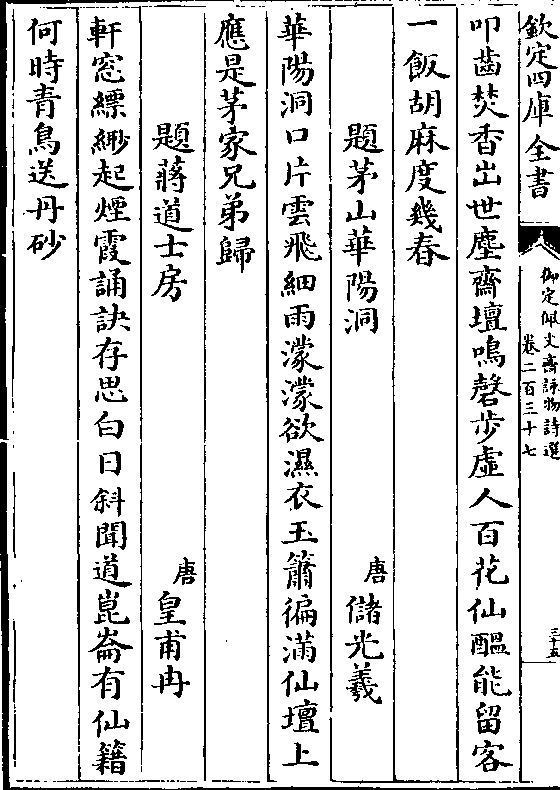 欽定四庫全書
御定佩文齋詠物詩選
卷二百三十七
三十五
叩齒焚香出世塵齋壇鳴磬步虛人百花仙醞能留客
一飯胡麻度幾春
題茅山華陽洞
唐 儲光羲
華陽洞口片雲飛細雨濛濛欲濕衣玉簫徧滿仙壇上
應是茅家兄弟歸
題蔣道士房
唐 皇甫冉
軒窓縹緲起煙霞誦訣存思白日斜聞道崑崙有仙籍
何時青鳥送丹砂